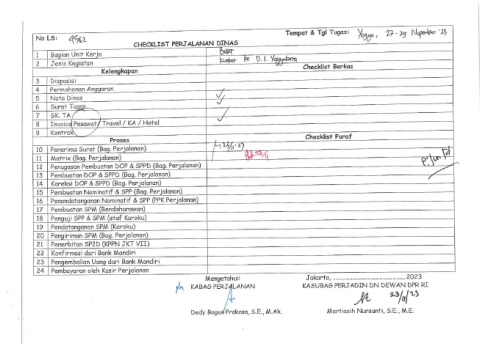 No LS: 4562
Tempat & Tgl Tugas: Yogya, 27-29 November '23
CHECKLIST PERJALANAN DINAS
1 Bagian Unit Kerja
2 Jenis Kegiatan Kunker ke D.I. Yogyakarta
Kelengkapan Checklist Berkas
3 Disposisi
4 Permohonan Anggaran
5 Nota Dinas ✓
6 Surat Tugas ✓
7 SK, TA
8 Invoice Pesawat/ Travel / KA / Hotel ✓
9 Kontrak
Proses Checklist Paraf
10 Penerima Surat (Bag. Perjalanan)
11 Matrix (Bag. Perjalanan)
12 Penugasan Pembuatan DOP & SPPD (Bag. Perjalanan)
13 Pembuatan DOP & SPPD (Bag. Perjalanan)
14 Koreksi DOP & SPPD (Bag. Perjalanan)
15 Pembuatan Nominatif & SPP (Bag. Perjalanan)
16 Penandatanganan Nominatif & SPP (PPK Perjalanan)
17 Pembuatan SPM (Bendaharawan)
18 Penguji SPP & SPM (staf Karoku)
19 Pendatanganan SPM (Karoku)
20 Pengiriman SPM (Bag. Perjalanan)
21 Penerbitan SP2D (KPPN JKT VII)
22 Konfirmasi dari Bank Mandiri
23 Pengembalian Uang dari Bank Mandiri
24 Pembayaran oleh Kasir Perjalanan
Mengetahui: Jakarta, ..............................2023
KABAG PERJALANAN KASUBAG PERJADIN DN DEWAN DPR RI
23/11/23
Dedy Bagus Prakasa, S.E., M.Ak. Martiasih Nursanti, S.E., M.E.